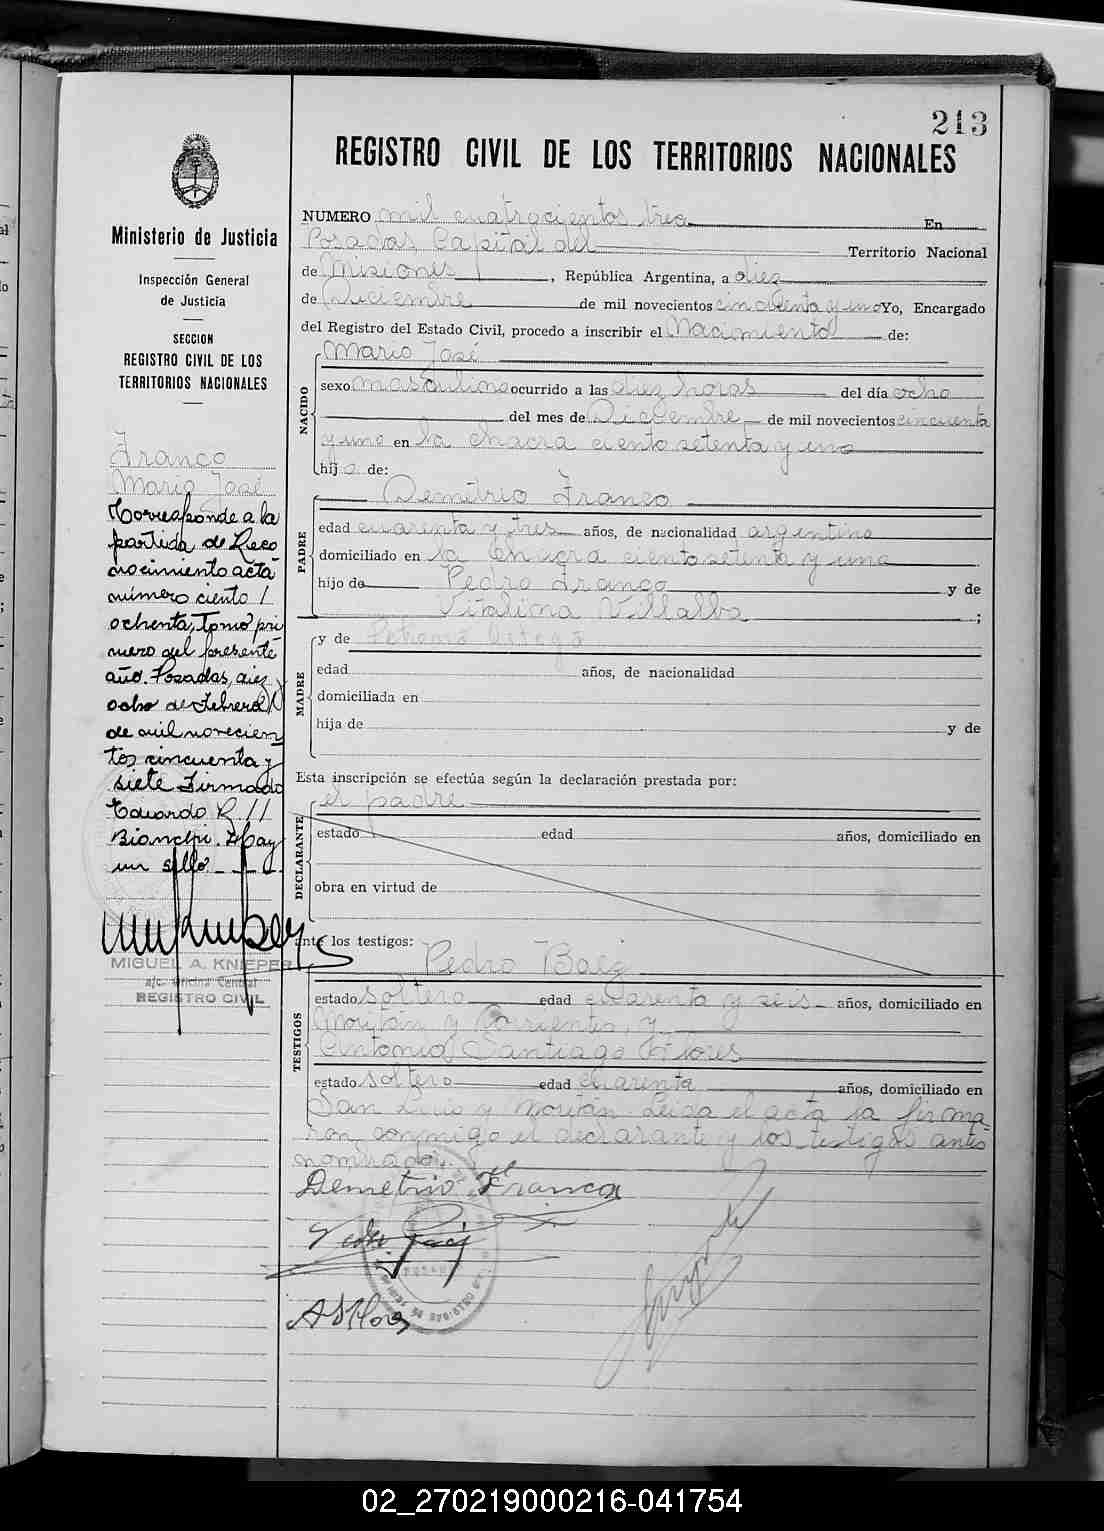 213
REGISTRO CIVIL DE LOS TERRITORIOS NACIONALES
Ministerio de Justicia
Inspección General
de Justicia
SECCION
REGISTRO CIVIL DE LOS
TERRITORIOS NACIONALES
Franco
Mario José
Corresponde a la
partida de Reco
nocimiento acta
número ciento
ochenta, Tomo pri
mero del presente
año. Posadas, diez y
ocho de Febrero
de mil novecien
tos cincuenta y
siete Firmado
Eduardo R.
Bianchi. Hay
un sello.
MIGUEL A. KNIEPER
a/c. Oficina Central
REGISTRO CIVIL
NUMERO mil cuatrocientos tres En
Posadas, Capital del Territorio Nacional
de Misiones, República Argentina, a diez
de Diciembre de mil novecientos cincuenta y uno Yo, Encargado
del Registro del Estado Civil, procedo a inscribir el Nacimiento de:
NACIDO
Mario José
sexo masculino ocurrido a las diez horas del día ocho
del mes de Diciembre de mil novecientos cincuenta
y uno en la chacra ciento setenta y uno
hijo de:
PADRE
Demitrio Franco
edad cuarenta y tres años, de nacionalidad argentino
domiciliado en la chacra ciento setenta y uno
hijo de Pedro Franco y de
Vitalina Villalba ;
MADRE
y de
edad años, de nacionalidad
domiciliada en
hija de y de
Esta inscripción se efectúa según la declaración prestada por:
DECLARANTE
el padre
estado edad años, domiciliado en
obra en virtud de
ante los testigos:
TESTIGOS
Pedro Baez
estado soltero edad cuarenta y seis años, domiciliado en
y Corrientes, y
Antonio Santiago Flores
estado soltero edad cuarenta años, domiciliado en
San Luis y Leida el acta la firma-
ron conmigo el declarante y los testigos antes
nombrados.
Demetrio Franco
02_270219000216-041754